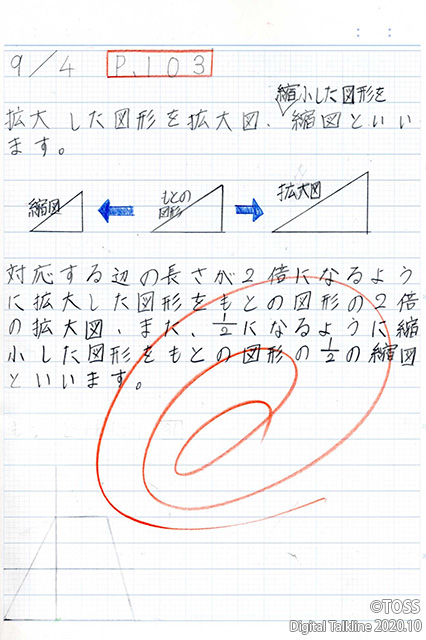 9/4 P.103
縮小した図形を
拡大した図形を拡大図、縮図といい
ます。
縮図
もとの
図形
拡大図
対応する辺の長さが2倍になるよう
に拡大した図形をもとの図形の2倍
の拡大図、また、1/2になるように縮
小した図形をもとの図形の1/2の縮図
といいます。
©TOSS
Digital Talkline 2020.10